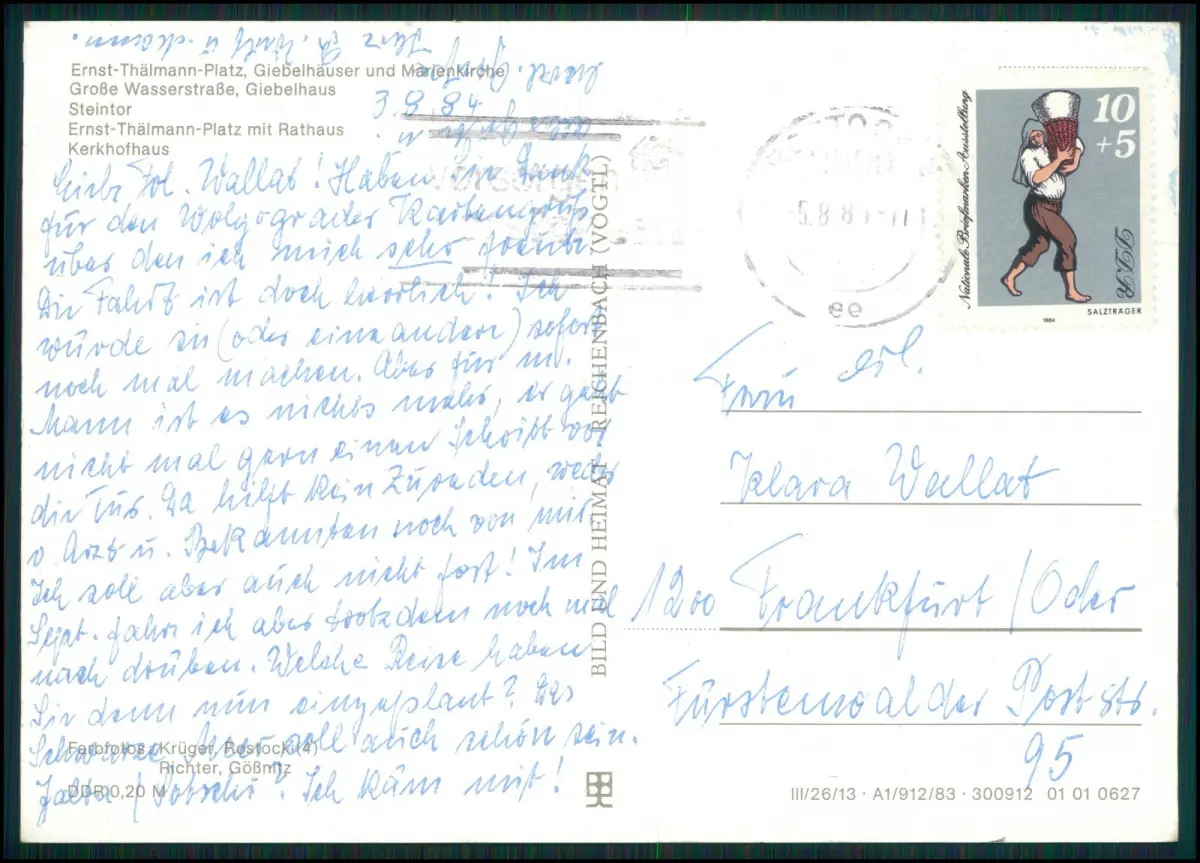 Ernst-Thälmann-Platz, Giebelhäuser und Marienkirche
Große Wasserstraße, Giebelhaus
Steintor
Ernst-Thälmann-Platz mit Rathaus
Kerkhofhaus
3.8.84
Liebe Frl. Wallat! Haben Sie Dank
für den Wolgograder Kartengruß
über den ich mich sehr freute.
Die Fahrt ist doch herrlich! Ich
würde sie (oder eine andere) sofort
noch mal machen. Aber für m.
Mann ist es nichts mehr, er geht
nicht mal gern einen Schritt vor
die Tür. Da hilft kein Zureden, weder
v. Arzt u. Bekannten noch von mir.
Ich soll aber auch nicht fort! Im
Sept. fahre ich aber trotzdem noch mal
nach drüben. Welche Reise haben
Sie denn nun eingeplant? Das
Schwarze Meer soll auch schön sein.
Jalta / Sotschi? Ich käm mit!
Herzl. Grüße
Ihre
u. Mann.
Farbfotos: Krüger, Rostock (4)
Richter, Gößnitz
DDR 0,20 M
BILD UND HEIMAT · REICHENBACH (VOGTL)
5.8.8
ee
Nationale Briefmarken-Ausstellung
10
+5
DDR
1984
SALZTRÄGER
Frau
Klara Wallat
1200 Frankfurt/Oder
Fürstenwalder Poststr.
95
III/26/13 · A1/912/83 · 300912 01 01 0627